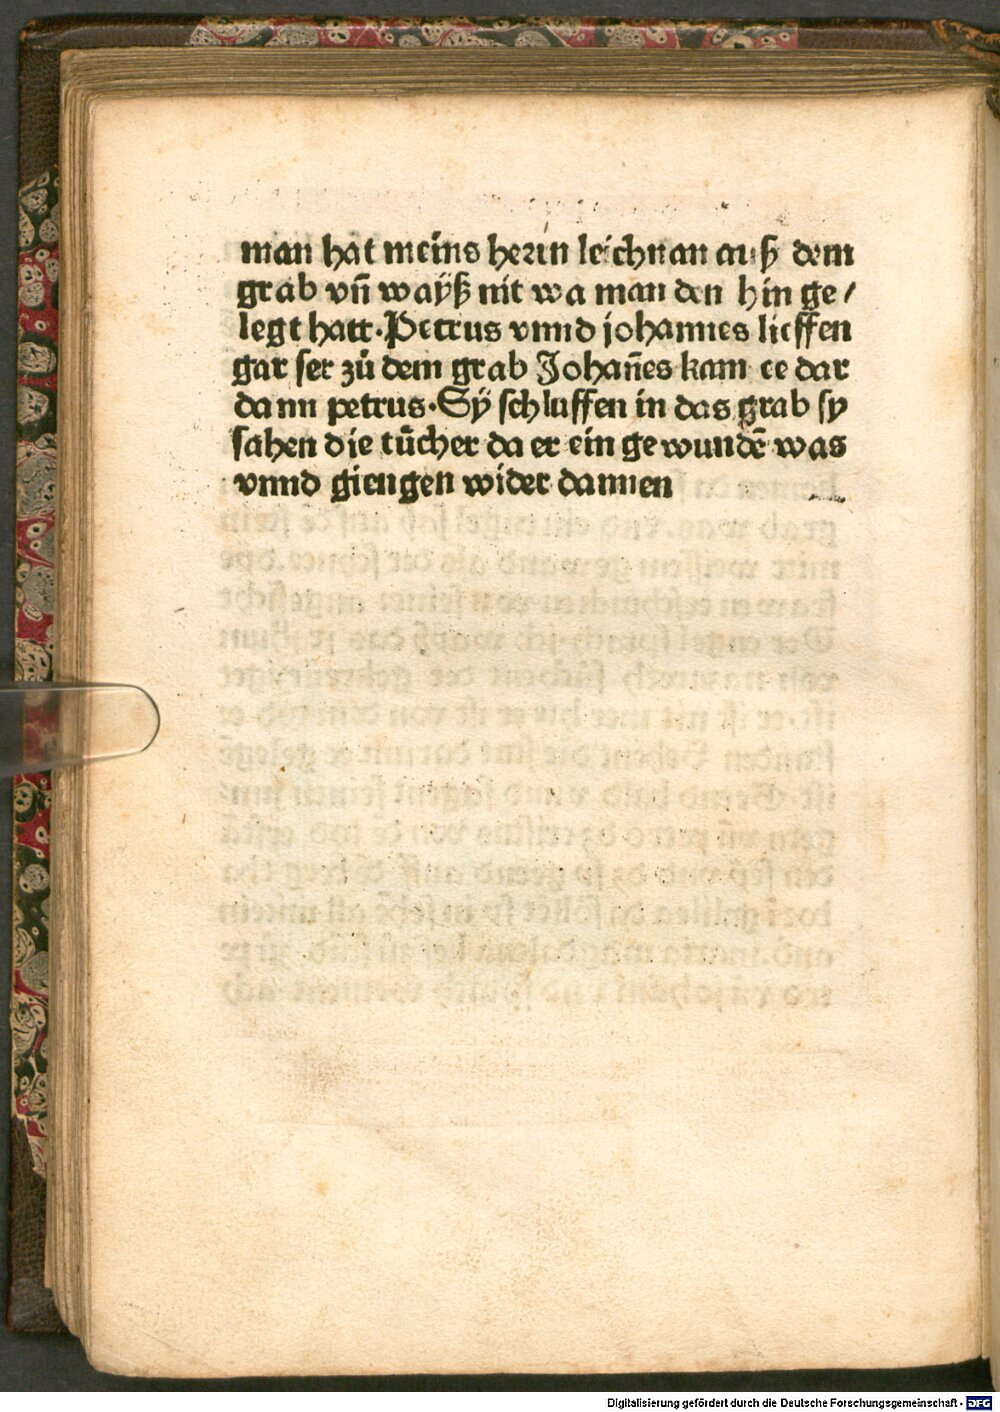 man hat meins herrn leichnan auß dem
grab vn̄ waÿß nit wa man den hin ge/
legt hatt·Petrus vnnd johannes lieffen
gar ser zů dem grab Johan̄es kam ee dar
dann petrus·Sÿ schluffen in das grab sy
sahen die tücher da er ein gewundē was
vnnd giengen wider dannen
Digitalisierung gefördert durch die Deutsche Forschungsgemeinschaft - DFG